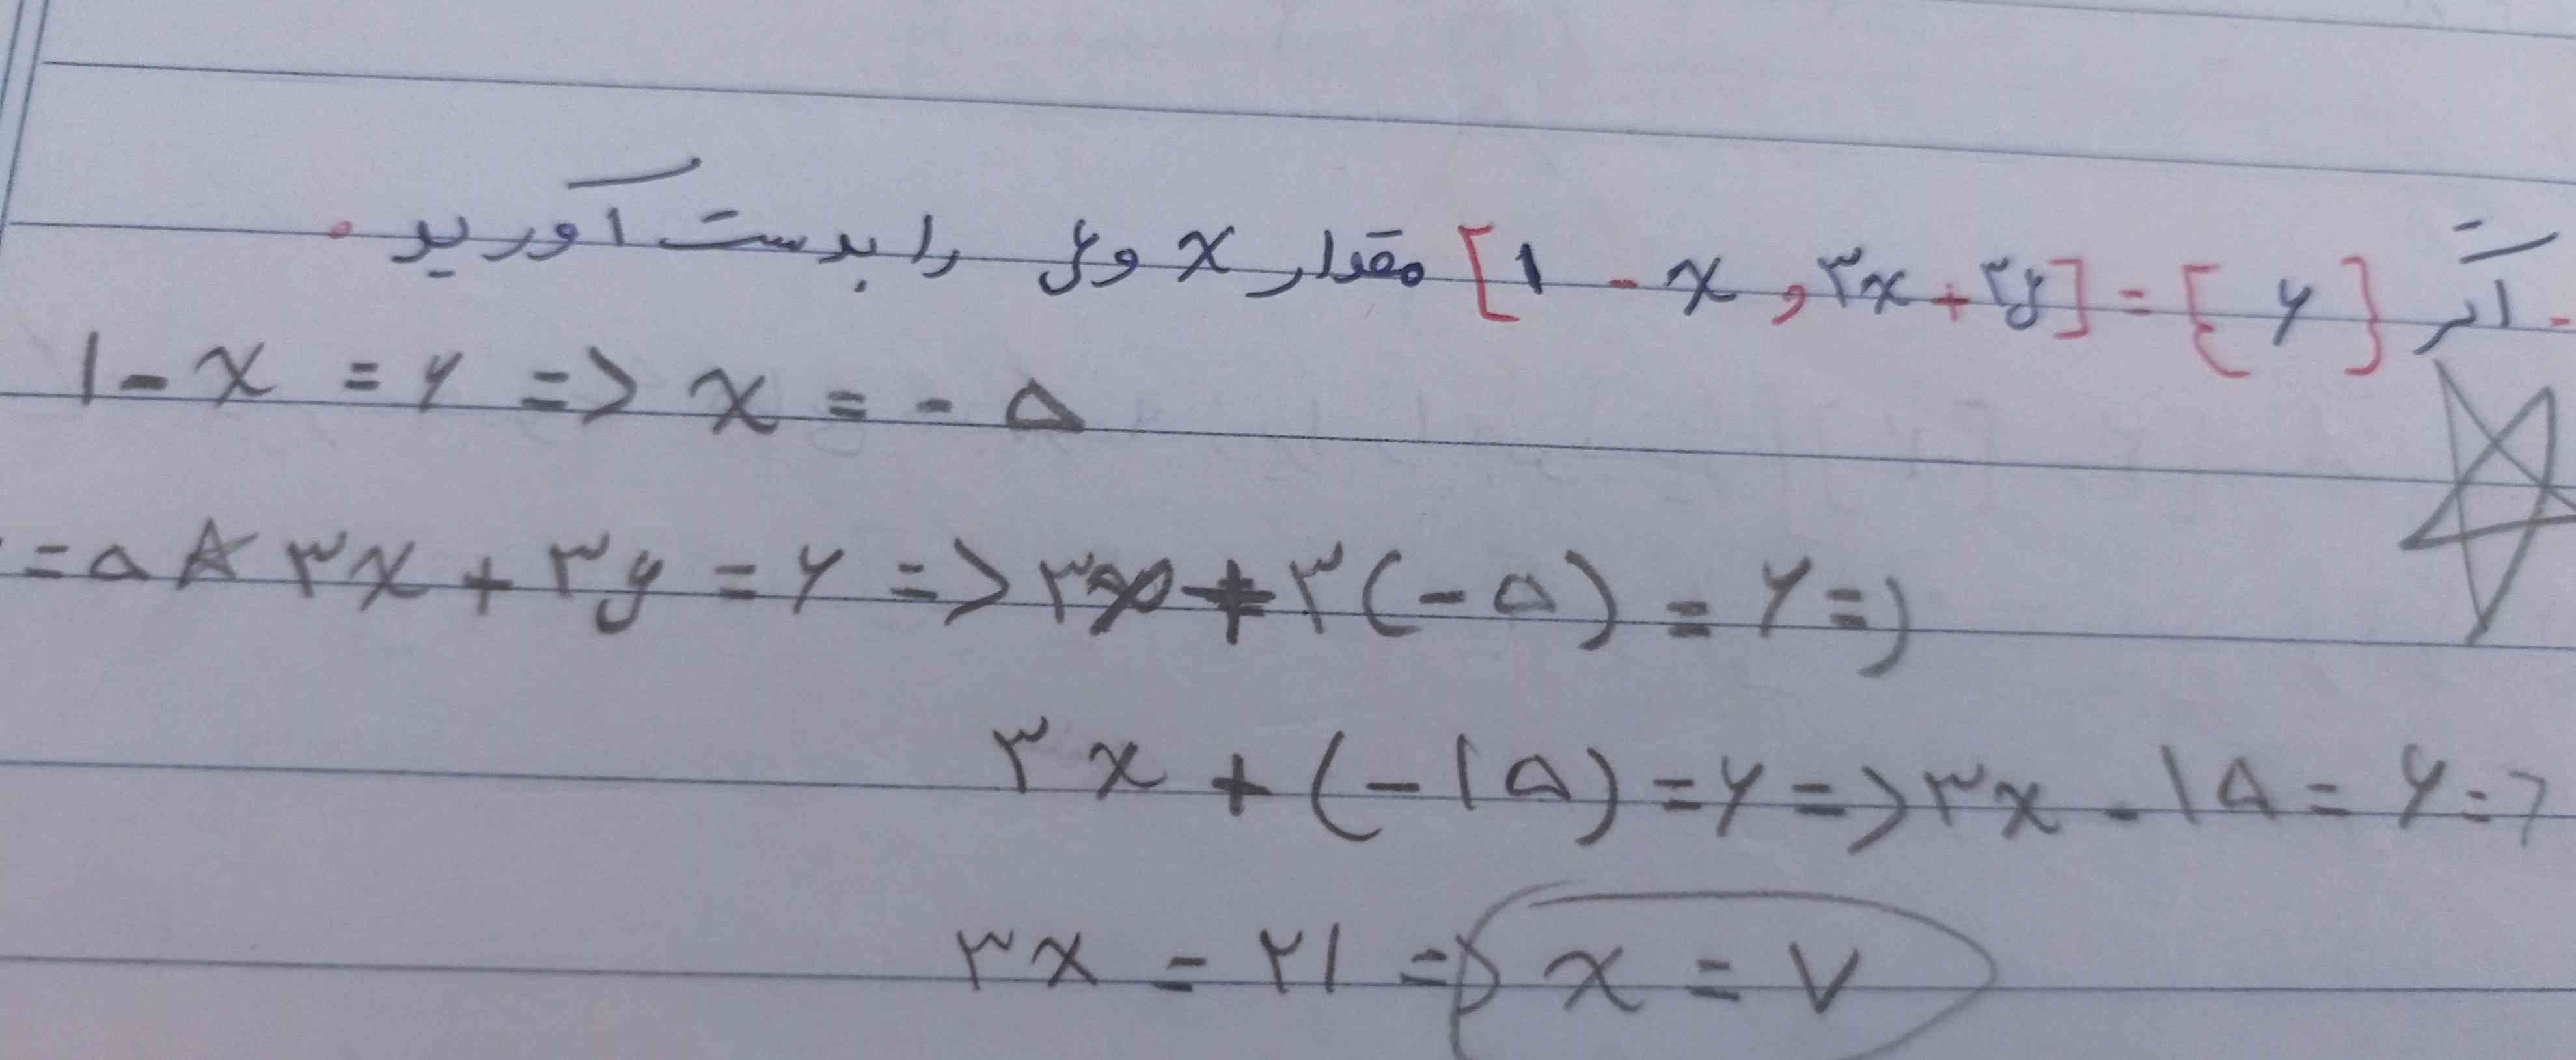 - اگر {۶} = [۳x + ۳y , x - ۱] مقدار x و y را بدست آورید.
۱ - x = ۶ => x = - ۵
= ۵ ۳x + ۳y = ۶ => ۳x + ۳(-۵) = ۶ =>
۳x + (-۱۵) = ۶ => ۳x - ۱۵ = ۶ =>
۳x = ۲۱ => x = ۷